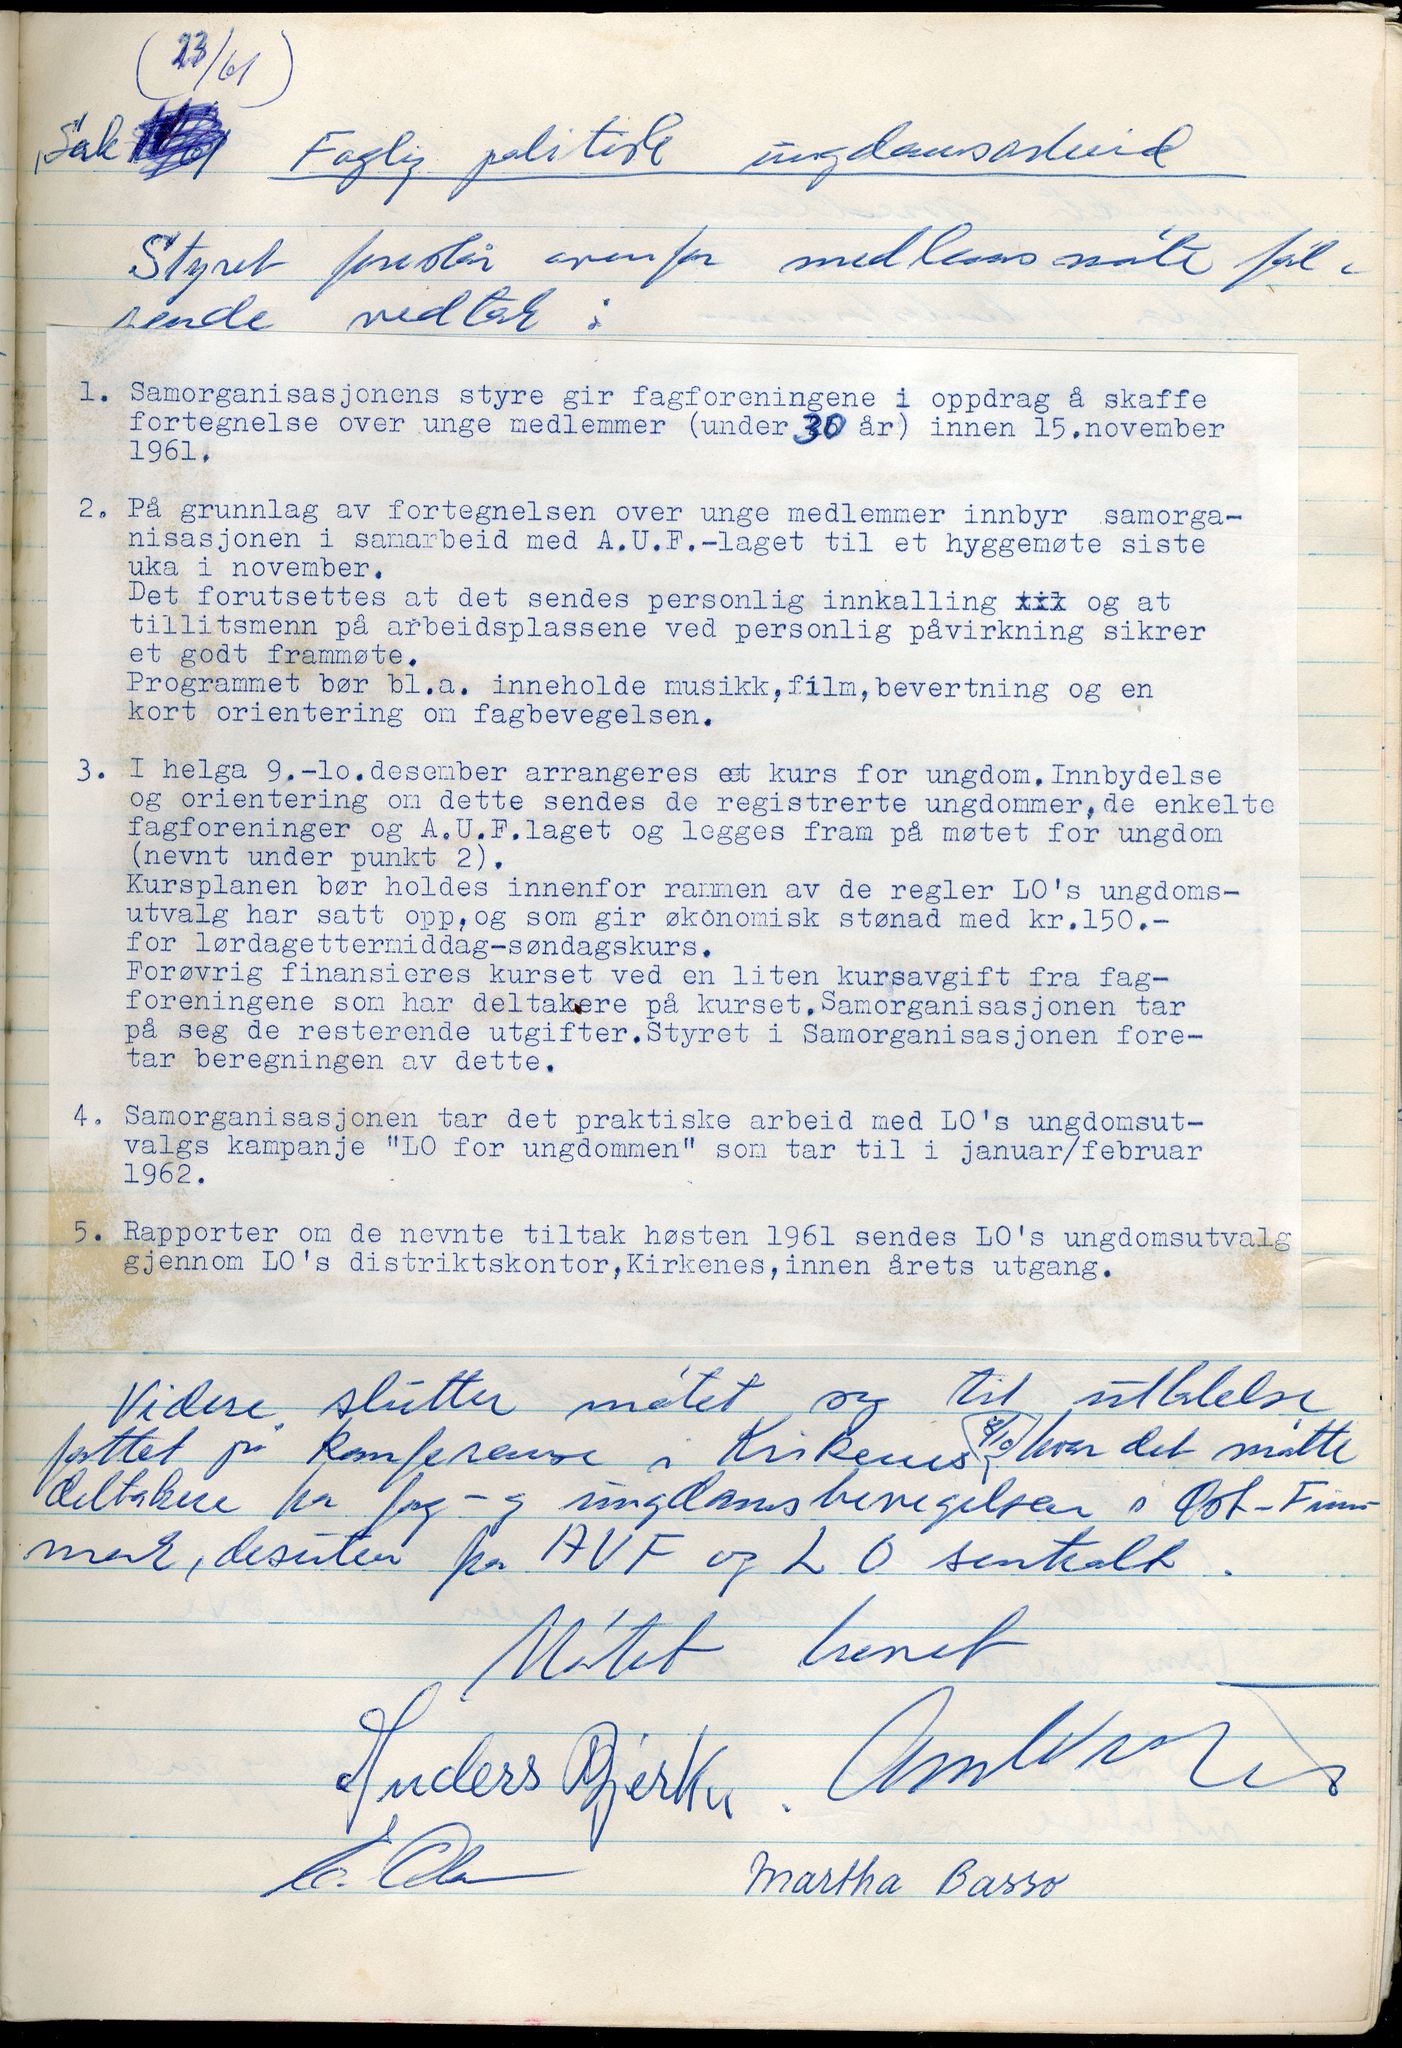 (23/61)
Sak Faglig politisk ungdomsarbeid
Styret foreslår ovenfor medlemsmøte føl-
gende vedtak:
1. Samorganisasjonens styre gir fagforeningene i oppdrag å skaffe
fortegnelse over unge medlemmer (under 30 år) innen 15.november
1961.
2. På grunnlag av fortegnelsen over unge medlemmer innbyr samorga-
nisasjonen i samarbeid med A.U.F.-laget til et hyggemøte siste
uka i november.
Det forutsettes at det sendes personlig innkalling xxx og at
tillitsmenn på arbeidsplassene ved personlig påvirkning sikrer
et godt frammøte.
Programmet bør bl.a. inneholde musikk,film,bevertning og en
kort orientering om fagbevegelsen.
3. I helga 9.-10.desember arrangeres et kurs for ungdom.Innbydelse
og orientering om dette sendes de registrerte ungdommer,de enkelte
fagforeninger og A.U.F.laget og legges fram på møtet for ungdom
(nevnt under punkt 2).
Kursplanen bør holdes innenfor rammen av de regler LO's ungdoms-
utvalg har satt opp,og som gir økonomisk stønad med kr.150.-
for lørdagettermiddag-søndagskurs.
Forøvrig finansieres kurset ved en liten kursavgift fra fag-
foreningene som har deltakere på kurset.Samorganisasjonen tar
på seg de resterende utgifter.Styret i Samorganisasjonen fore-
tar beregningen av dette.
4. Samorganisasjonen tar det praktiske arbeid med LO's ungdomsut-
valgs kampanje "LO for ungdommen" som tar til i januar/februar
1962.
5. Rapporter om de nevnte tiltak høsten 1961 sendes LO's ungdomsutvalg
gjennom LO's distriktskontor,Kirkenes,innen årets utgang.
Videre slutter møtet seg til uttalelse
fattet på konferanse i Kirkenes 8/10 hvor det møtte
deltakere fra fag- og ungdomsbevegelsen i Øst-Finn-
mark, desuten fra AUF og LO sentralt.
Møtet hevet
Anders Bjerke.
Martha Basso